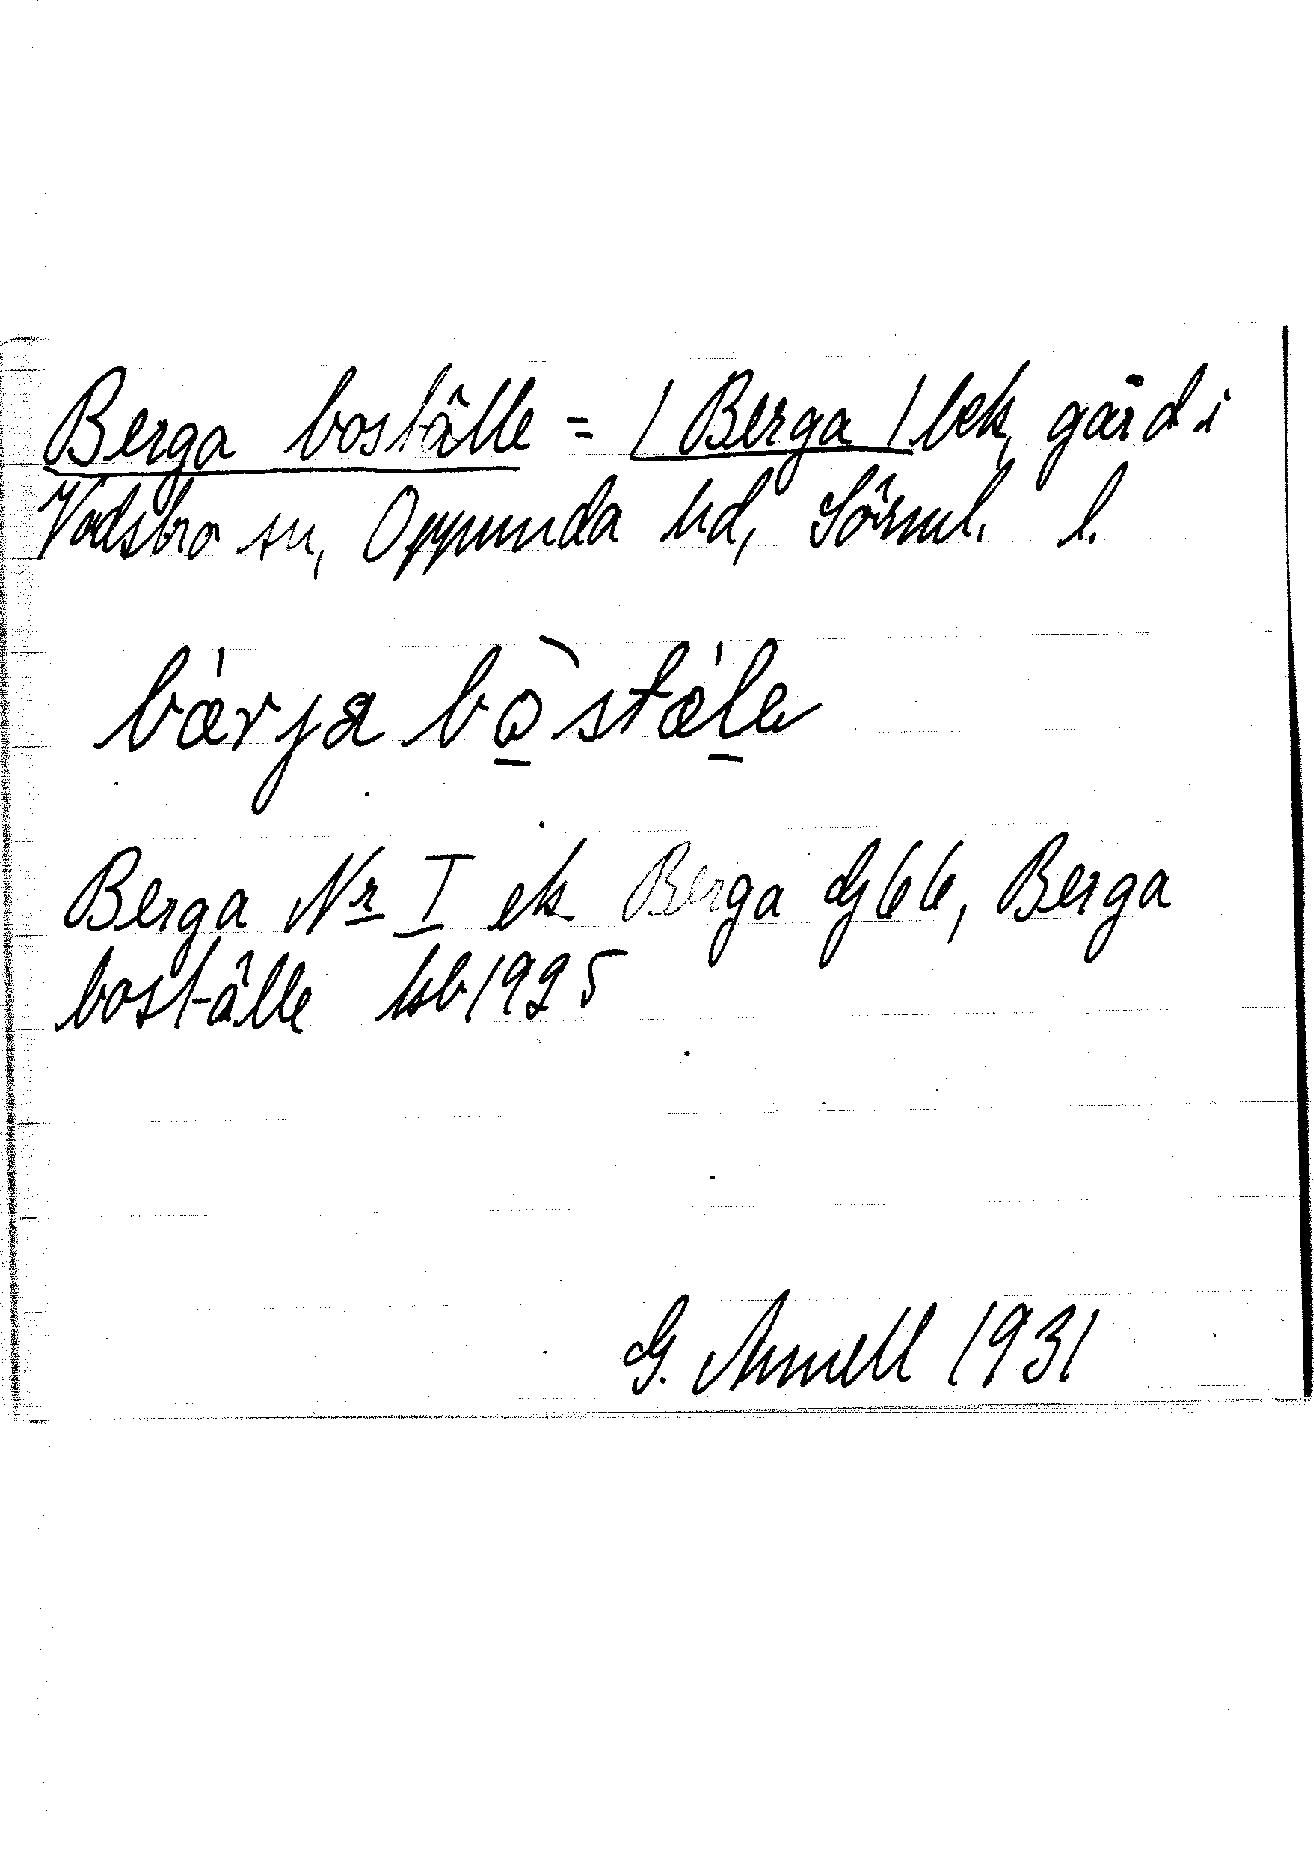 Berga boställe = | Berga | bek, gård i
Vadsbro sn, Oppunda hd, Sörml. l.
bærja bo̱stæ̱la
Berga Nr I ek Berga G66, Berga
boställe hb 1925
G. Annell 1931